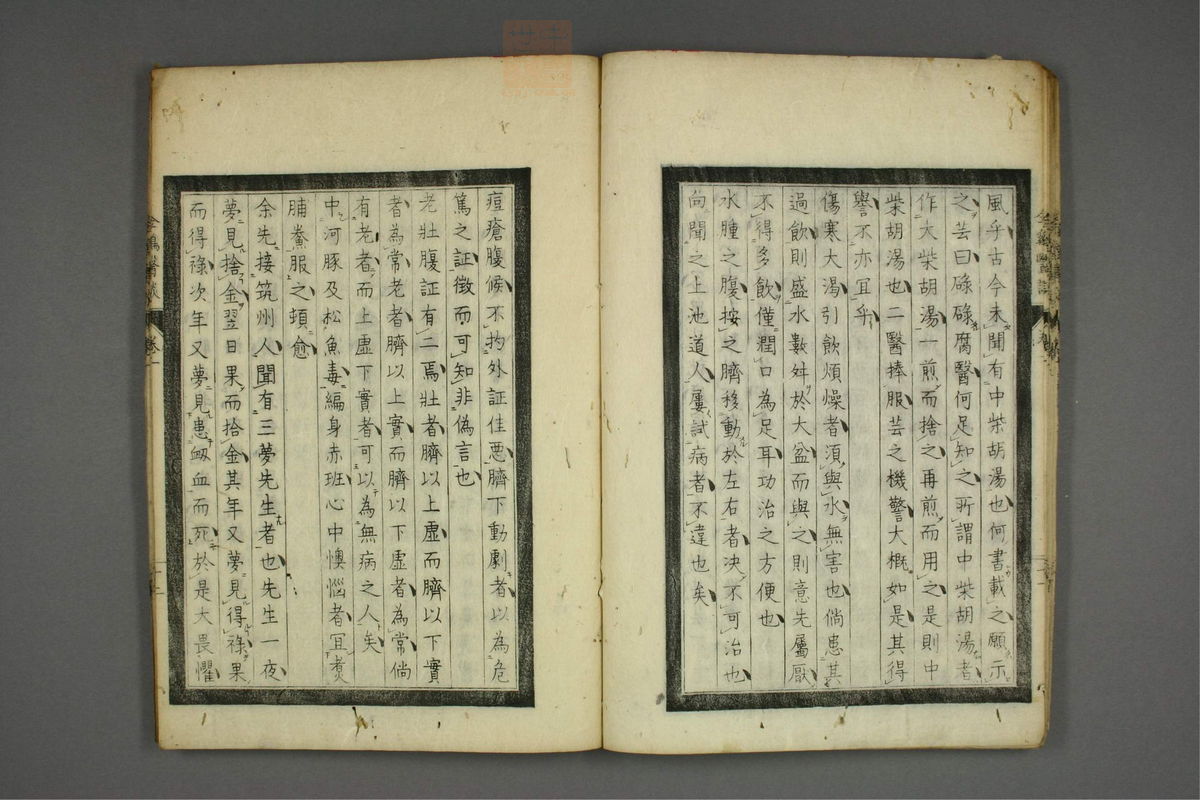 風乎古今未聞有中柴胡湯也何書載之願示
之芸曰碌碌腐醫何足知之所謂中柴胡湯者
作大柴胡湯一煎而捨之再煎而用之是則中
柴胡湯也二醫捧服芸之機警大概如是其得
譽不亦宜乎
傷寒大渴引飲煩燥者須與水無害也倘患其
過飲則盛水數舛於大盆而與之則意先屬厭
不得多飲僅潤口為足耳功治之方便也
水腫之腹按之臍移動於左右者决不可治也
向聞之上池道人屢試病者不違也矣
痘瘡腹候不拘外証佳悪臍下動劇者以為危
篤之証徴而可知非偽言也
老壯腹証有二焉壯者臍以上虛而臍以下實
者為常老者臍以上實而臍以下虛者為常倘
有老者而上虛下實者可以為無病之人矣
中河豚及松魚毒編身赤班心中懊惱者冝煑
脯鯗服之頓愈
余先接筑州人聞有三夢先生者也先生一夜
夢見捨金翌日果而拾金其年又夢見得祿果
而得祿次年又夢見患衂血而死於是大畏懼